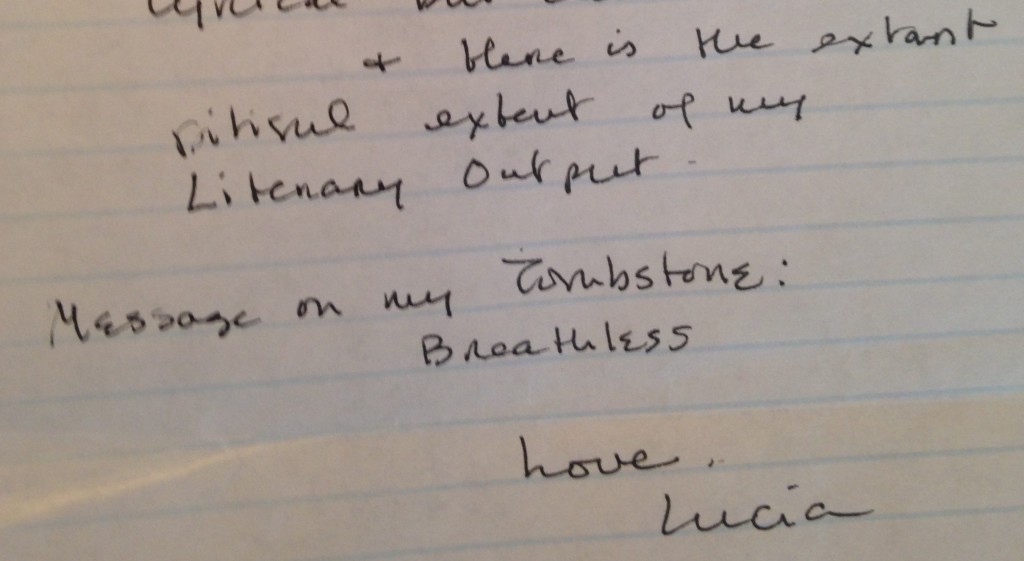 + there is the extant
pitiful extent of my
Literary Output.
Message on my Tombstone:
Breathless
Love,
Lucia